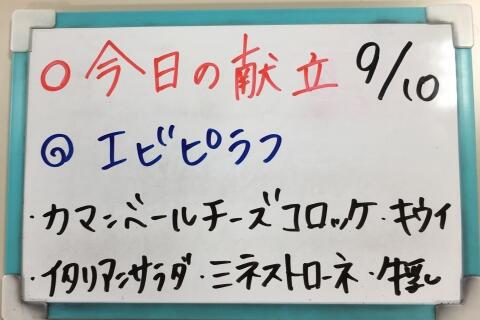 ○今日の献立 9/10
◎エビピラフ
・カマンベールチーズコロッケ・キウイ
・イタリアンサラダ・ミネストローネ・牛乳